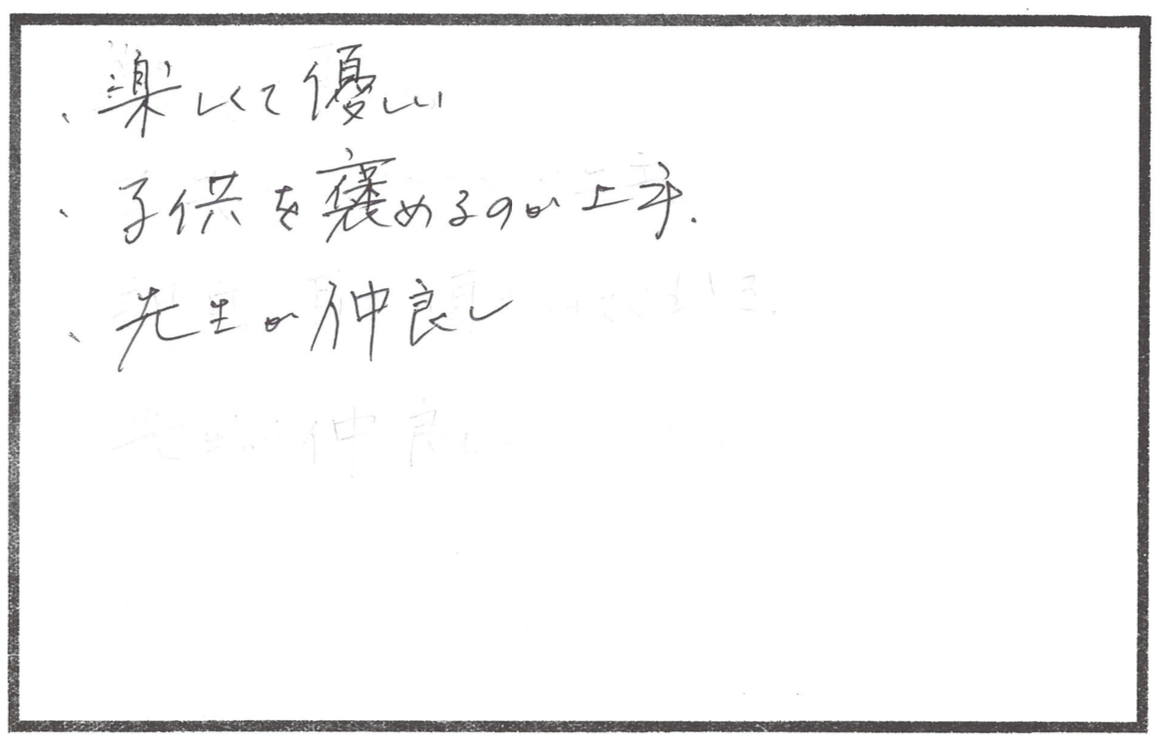 、楽しくて優しい
、子供を褒めるのが上手.
、先生が仲良し